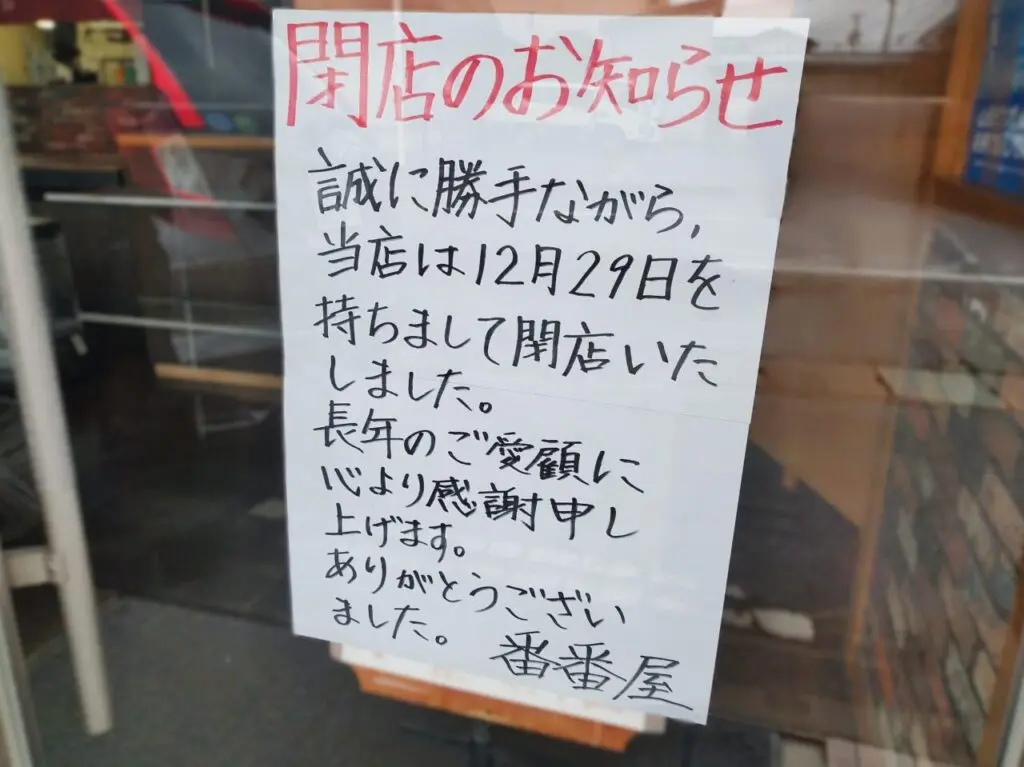 閉店のお知らせ
誠に勝手ながら,
当店は12月29日を
持ちまして閉店いた
しました。
長年のご愛顧に
心より感謝申し
上げます。
ありがとうござい
ました。
番番屋